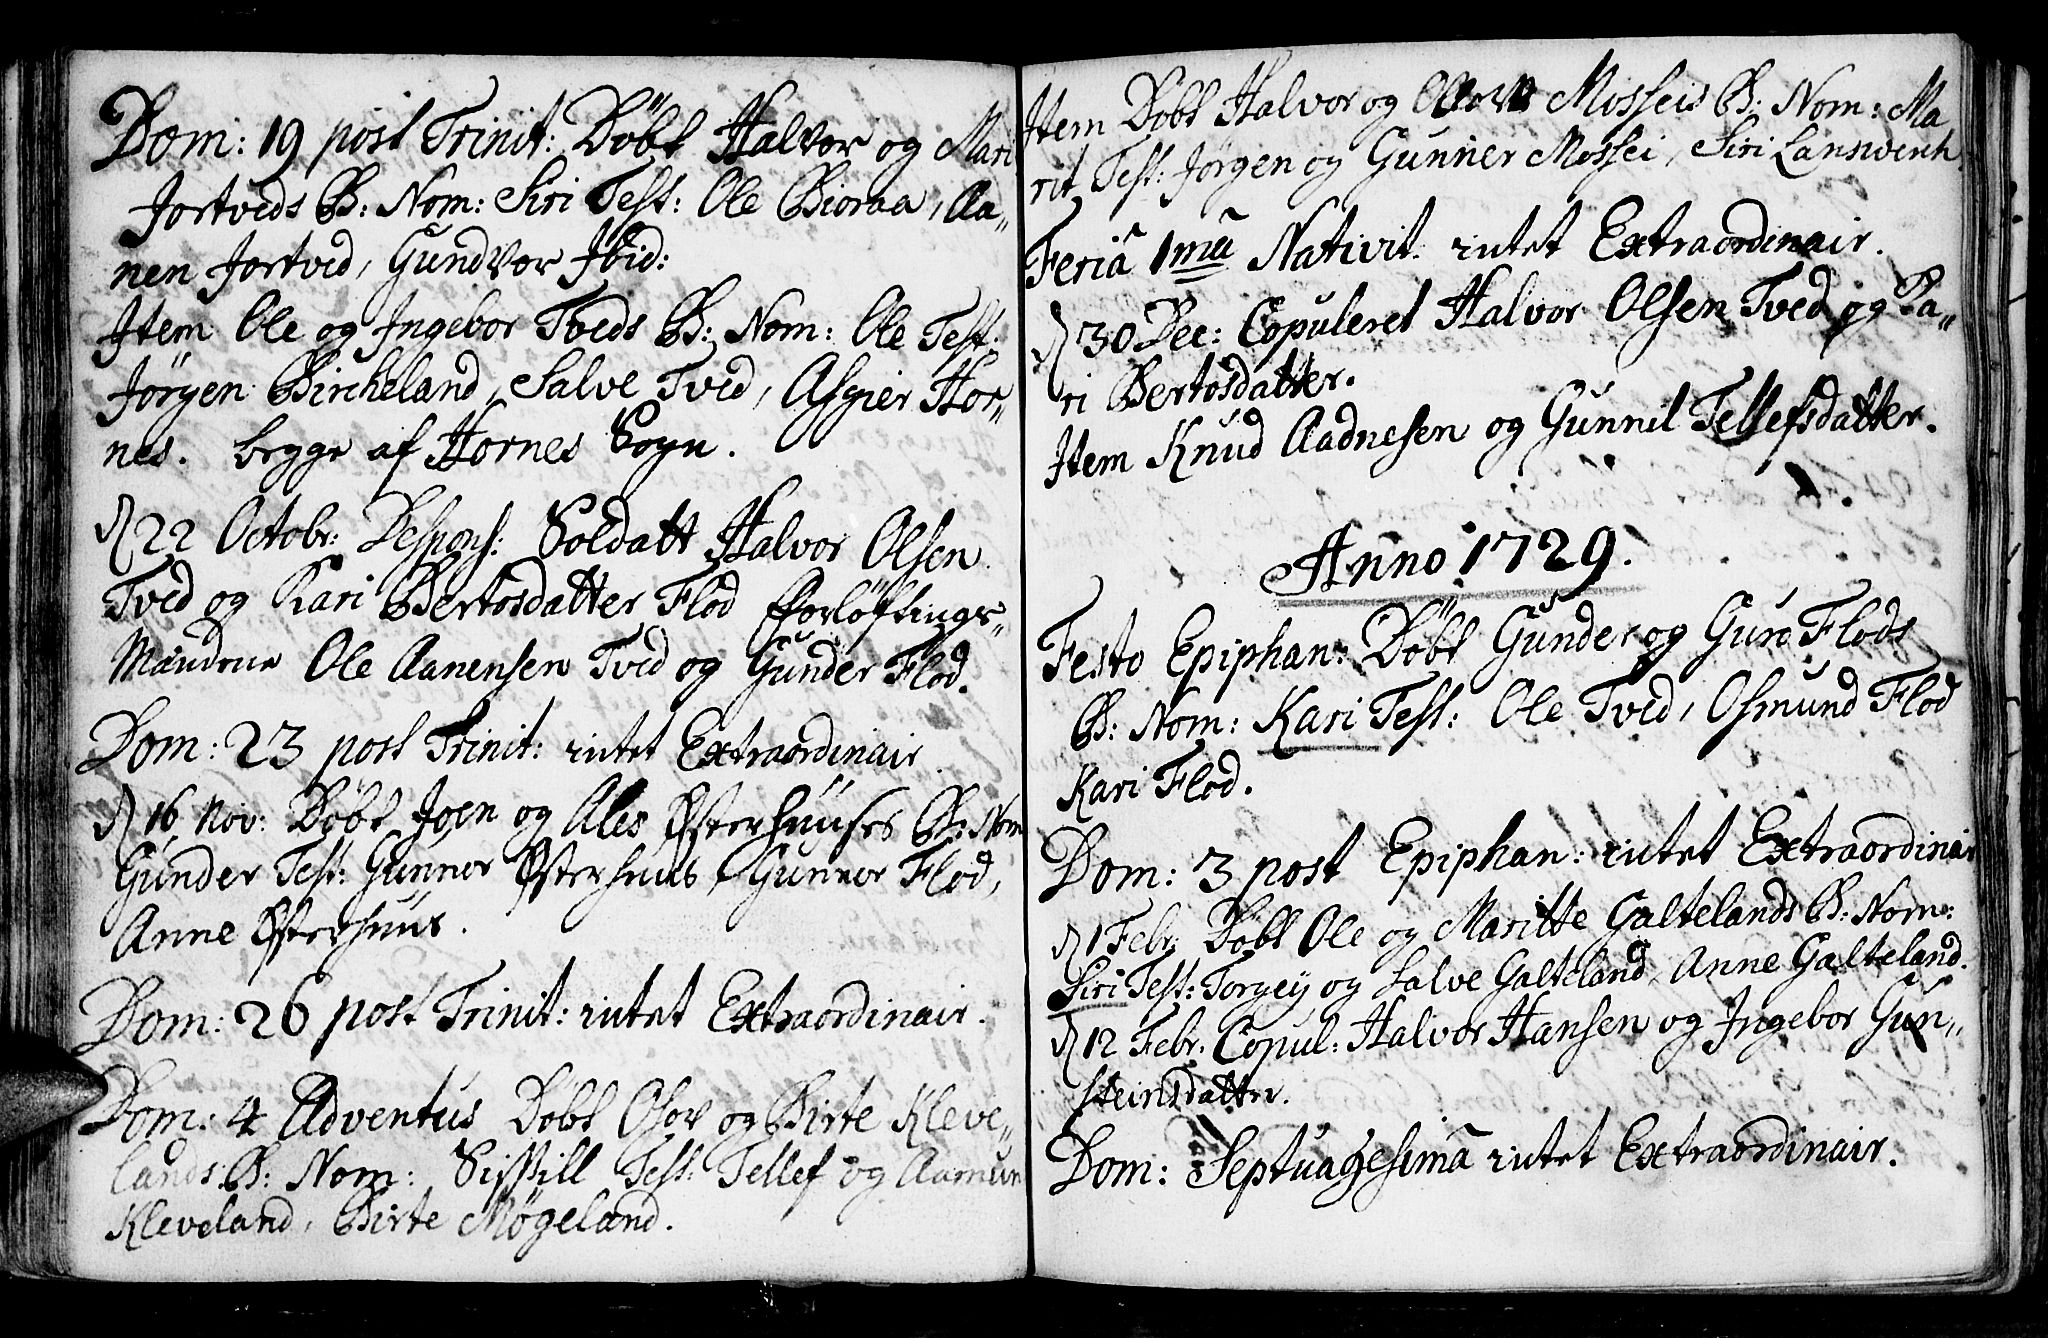 Dom: 19 post Trinit: Döbt Halvor og Mari
Jortveds B: Nom: Siri Test: Ole Bioraa, Aa„
nen Jortvid, Gundvor Ibid:
Item Ole og Ingebor Tveds B: Nom: Ole Test:
Jörgen Bircheland, Salve Tved, Asgier Hor„
nes. begge af Hornes Sogn.
22 Octobr: Despons: Soldatt Halvor Olsen
Tved og Kari Bertosdatter Flod Forlöftings„
Mændene Ole Aanensen Tved og Gunder Flod.
Dom: 23 post Trinit: intet Extraordinair
16 Nov: Döbt Joen og Ales Østerhuuses B: Nom
Gunder Test: Gunnor Østerhuus, Gunnor Flod,
Anne Østerhuus.
Dom: 26 post Trinit: intet Extraordinair.
Dom: 4 Adventus Döbt Osov og Birte Kleve„
lands B: Nom: Sissill Test: Tellef og Aamun
Kleveland, Birte Mögeland.
Item Döbt Halvor og Mosseis B: Nom: Ma
rit Test: Jörgen og Gunner Mossei, Siri
Feriâ 1mâ Nativit. intet Extraordinair.
30 Dec: Copuleret Halvor Olsen Tved og Ka„
ri Bertosdatter.
Item Knud Aadnesen og Gunnil Tellefsdatter.
Anno 1729.
Festo Epiphan: Döbt Gunder og Guro Flods
B: Nom: Kari Test: Ole Tved, Osmund Flod
Kari Flod.
Dom: 3 post Epiphan: intet Extraordinair
1 Febr: Döbt Ole og Maritte Galtelands B: Nom:
Siri Test: Torgej og Salve Galteland, Anne Galteland.
12 Febr. Copul: Halvor Hansen og Ingebor Gun„
steinsdatter.
Dom: Septuagesimâ intet Extraordinair.